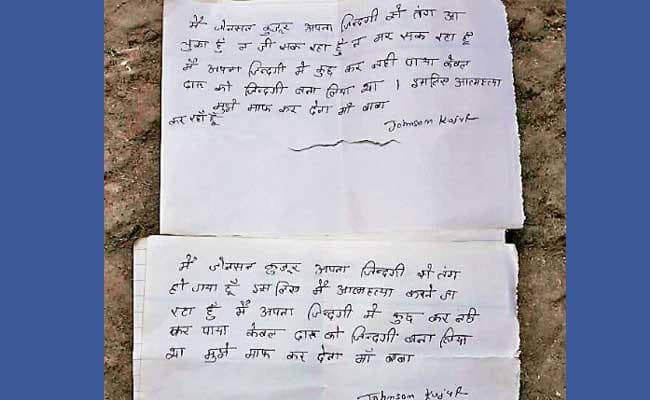 मैं जोनसन कुजूर अपना जिन्दगी से तंग आ
चुका हुँ न जी सक रहा हुँ न मर सक रहा हूँ
मैं अपना जिन्दगी मे कुछ कर नही पाया केवल
दारू को जिन्दगी बना लिया था । इसलिए आत्महत्या
मुझे माफ कर देना माँ बाबा
कर रहाँ हूँ
Johnsom Kujur
मैं जोनसन कुजूर अपना जिन्दगी से तंग
हो गया हूँ इस लिए मैं आत्महत्या करने जा
रहा हुँ मैं अपना जिन्दगी में कुछ कर नही
कर पाया केवल दारू को जिन्दगी बना लिया
था मुझे माफ कर देना माँ बाबा
Johnsom Kujur